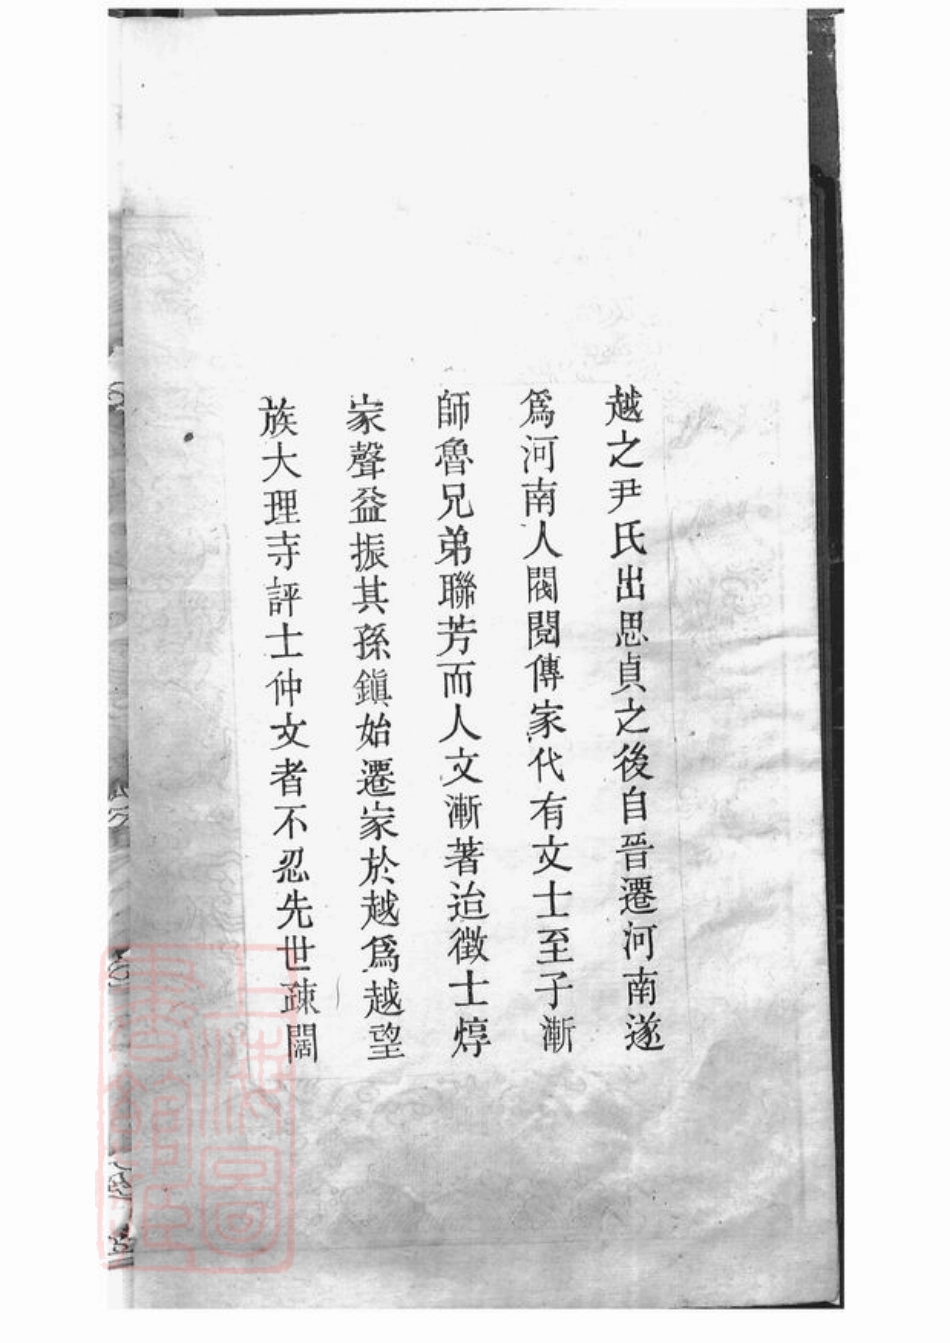 越之尹氏出思貞之後自晉遷河南遂
爲河南人閥閱傳家代有文士至子漸
師魯兄弟聯芳而人文漸著迨徵士焞
家聲益振其孫鎭始遷家於越爲越望
族大理寺評士仲文者不忍先世疎闊